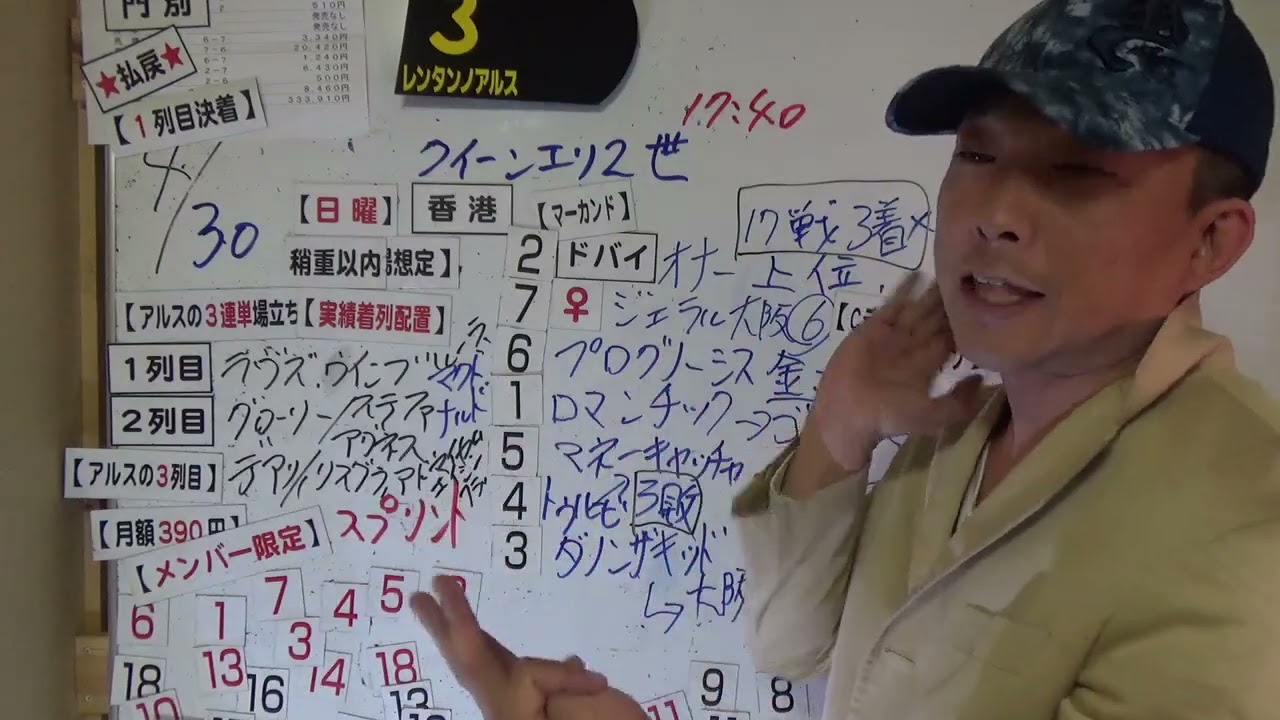 門別
510円
発売なし
発売なし
6-7 3,340円
7-6 20,420円
1,240円
6-7 6,430円
2-7 500円
2-6 8,460円
333,910円
★払戻★
【1列目決着】
3
レンタンノアルス
17:40
クイーンエリス2世
4/30
【日曜】
香港
【マーカンド】
17戦3着×
稍重以内
場想定】
2 ドバイ オナー 上位
【アルスの3連単場立ち
【実績着列配置】
7 ♀ ジェラル 大阪⑥
1列目 ラヴズ.ウインブ
6 プログノーシス 金
2列目 グローリー/ステファ
マクド
ナルド
1 ロマンチック
アグネス
【アルスの3列目】
5 マネーキャッチャ
【月額390円】
4 トゥルビ 3販
【メンバー限定】
スプリント
3 ダノンザキッド
→大阪
6 1 7 3 4 5
18 13 16 14 18 13
10 11 9 8